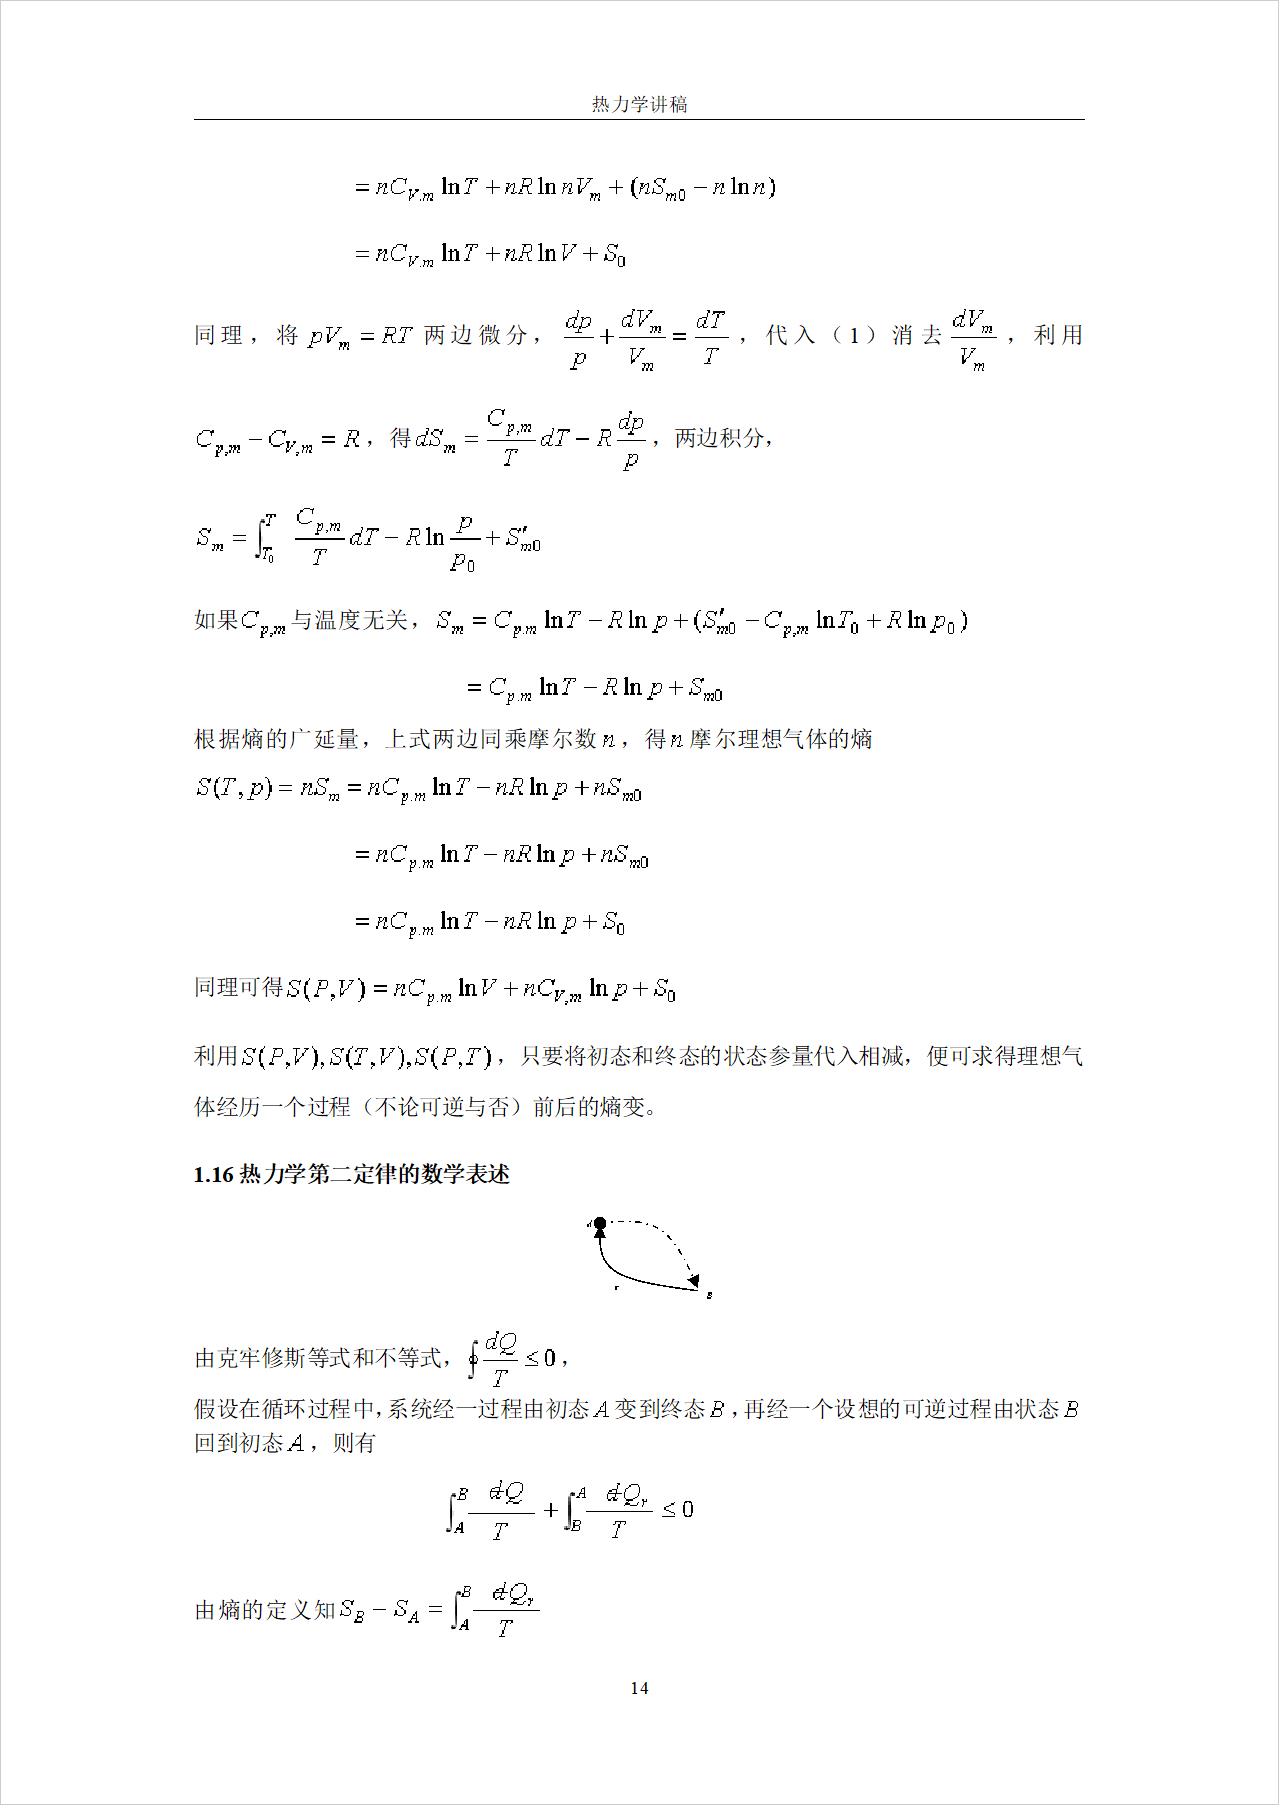 热力学讲稿
= nC_{V.m} ln T + nR ln nV_m + (nS_{m0} − n ln n)
= nC_{V.m} ln T + nR ln V + S_0
同理，将 pV_m = RT 两边微分，dp/p + dV_m/V_m = dT/T，代入（1）消去 dV_m/V_m，利用
C_{p,m} − C_{V,m} = R，得 dS_m = C_{p,m}/T dT − R dp/p，两边积分，
S_m = ∫_{T_0}^{T} C_{p,m}/T dT − R ln p/p_0 + S′_{m0}
如果C_{p,m}与温度无关，S_m = C_{p.m} ln T − R ln p + (S′_{m0} − C_{p,m} ln T_0 + R ln p_0)
= C_{p.m} ln T − R ln p + S_{m0}
根据熵的广延量，上式两边同乘摩尔数 n，得 n 摩尔理想气体的熵
S(T, p) = nS_m = nC_{p.m} ln T − nR ln p + nS_{m0}
= nC_{p.m} ln T − nR ln p + nS_{m0}
= nC_{p.m} ln T − nR ln p + S_0
同理可得 S(P,V) = nC_{p.m} ln V + nC_{V,m} ln p + S_0
利用 S(P,V), S(T,V), S(P,T)，只要将初态和终态的状态参量代入相减，便可求得理想气
体经历一个过程（不论可逆与否）前后的熵变。
1.16 热力学第二定律的数学表述
A
r
B
由克牢修斯等式和不等式，∮ dQ/T ≤ 0，
假设在循环过程中，系统经一过程由初态 A 变到终态 B，再经一个设想的可逆过程由状态 B
回到初态 A，则有
∫_A^B đQ/T + ∫_B^A đQ_r/T ≤ 0
由熵的定义知 S_B − S_A = ∫_A^B đQ_r/T
14